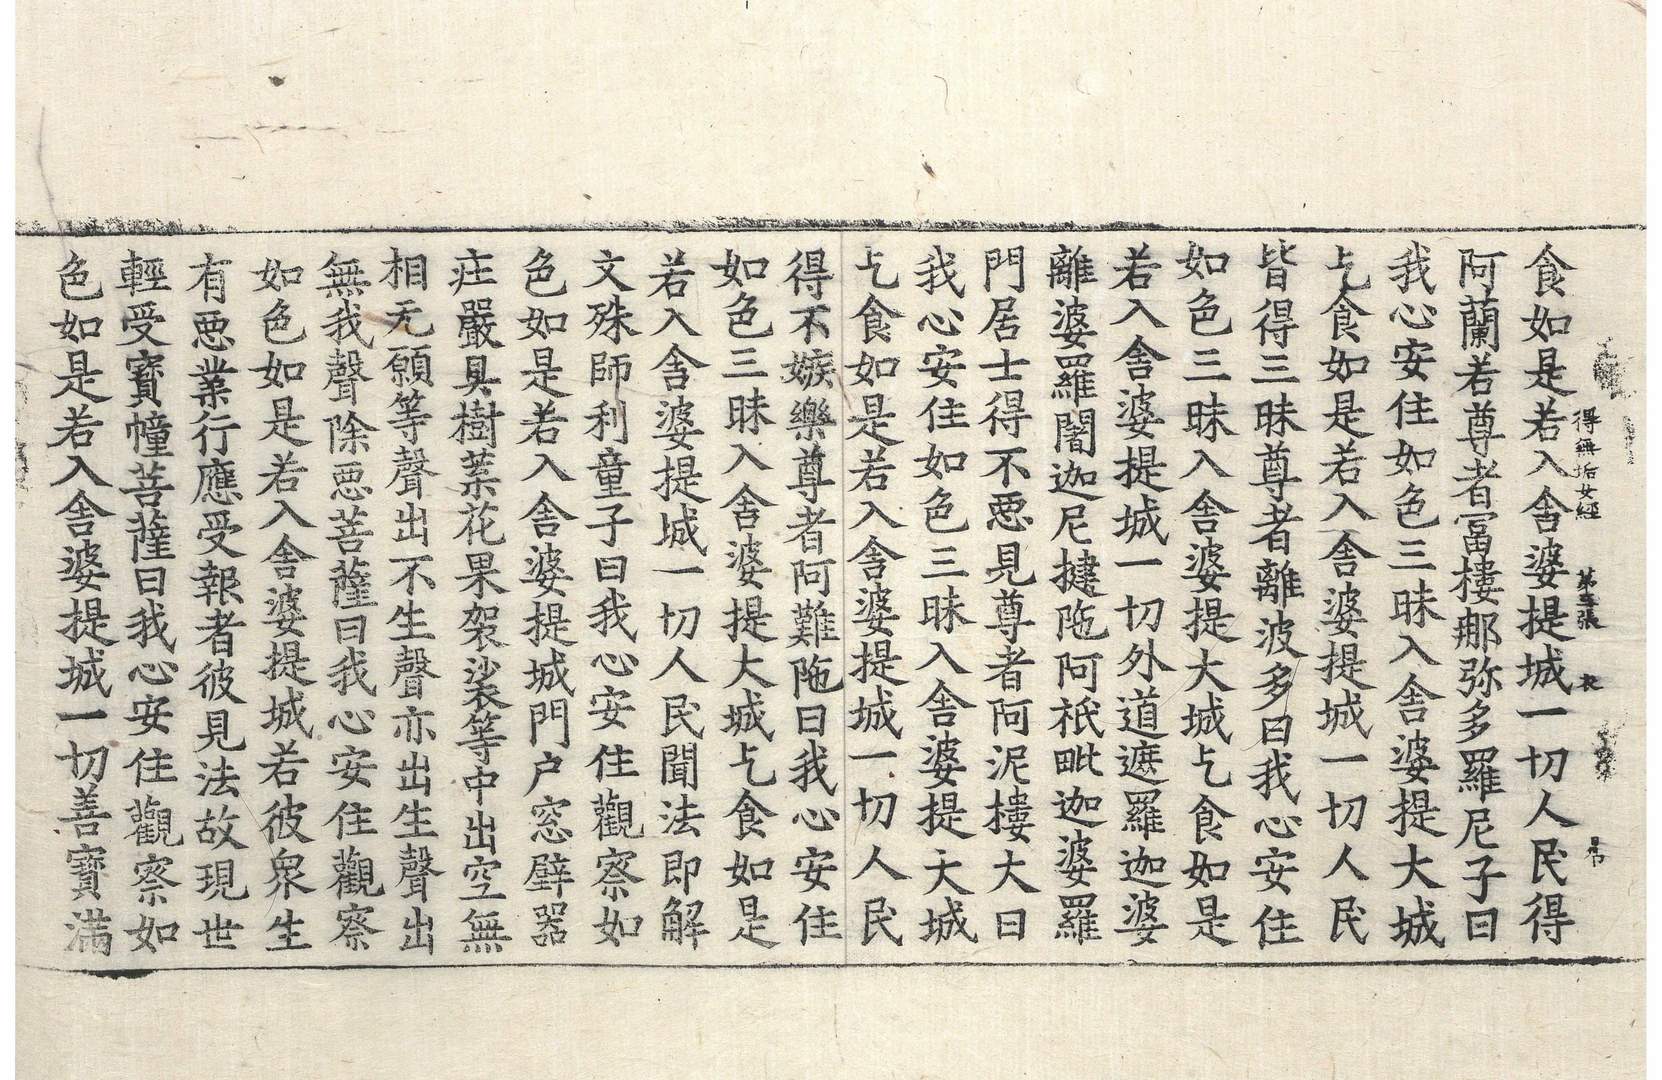 得無垢女經 第三張 衣
食如是若入舍婆提城一切人民得
阿蘭若尊者冨樓那弥多羅尼子曰
我心安住如色三昧入舍婆提大城
乞食如是若入舍婆提城一切人民
皆得三昧尊者離波多曰我心安住
如色三昧入舍婆提大城乞食如是
若入舍婆提城一切外道遮羅迦婆
離婆羅闍迦尼揵陁阿祇毗迦婆羅
門居士得不惡見尊者阿泥樓大曰
我心安住如色三昧入舍婆提大城
乞食如是若入舍婆提城一切人民
得不嫉樂尊者阿難陁曰我心安住
如色三昧入舍婆提大城乞食如是
若入舍婆提城一切人民聞法即解
文殊師利童子曰我心安住觀察如
色如是若入舍婆提城門户窓壁器
庄嚴具樹葉花果袈裟等中出空無
相无願等聲出不生聲亦出生聲出
無我聲除惡菩薩曰我心安住觀察
如色如是若入舍婆提城若彼衆生
有惡業行應受報者彼見法故現世
輕受寶幢菩薩曰我心安住觀察如
色如是若入舍婆提城一切善寶滿